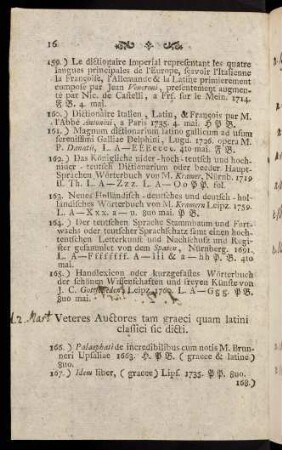 16
159.) Le dictionaire imperial representant les quatre
langues principales de l'Europe, sçavoir l'Italienne
la Françoise, l'Allemande & la Latine primierement
composé par Jean Veneroni, presentement augmenté
par Nic. de Castelli, a Frf. sur le Mein. 1714.
F B. 4. mai.
160.) Dictionaire Italien, Latin, & François par M.
l'Abbé Antonini, a Paris 1735. 4. mai. H P B.
161.) Magnum dictionarium latino gallicum ad usum
serenissimi Galliae Delphini, Lugd. 1726. opera M.
P. Danetii, L. A—Eeeeee4. 4to mai. F B.
162.) Das Königliche nider-hoch-teutsch und hoch-
nider-teutsch Dictionarium oder beeder Haupt-
Sprachen Wörterbuch von M. Kramer, Nürnb. 1719
II. Th. L. A—Zzz. L. A—Oo P P. fol.
163.) Neues Holländisch-deutsches und deutsch-hol-
ländisches Wörterbuch von M. Kramern Leipz. 1759.
L. A—Xxx. a—u. 8uo mai. P B.
164.) Der teutschen Sprache Stammbaum und Fort-
wachs oder teutscher Sprachschatz samt einer hoch-
teutschen Letterkunst und Nachschuss und Regi-
ster gesammlet von dem Spaten, Nürnberg. 1691.
L. A—Fffffff. A—Iii & a—hh P. B. 4to
mai.
165.) Handlexicon oder kurzgefasstes Wörterbuch
der schönen Wissenschaften und freyen Künste von
J. C. Gottscheden Leipz. 1760. L. A—Ggg. P B.
8uo mai.
Veteres Auctores tam graeci quam latini
classici sic dicti.
166.) Palaephati de incredibilibus cum notis M. Brun-
neri Upsaliae 1663. H. P B. (graece & latine)
8uo.
167.) Idem liber, (graece) Lips. 1735. P P. 8uo.
168.)